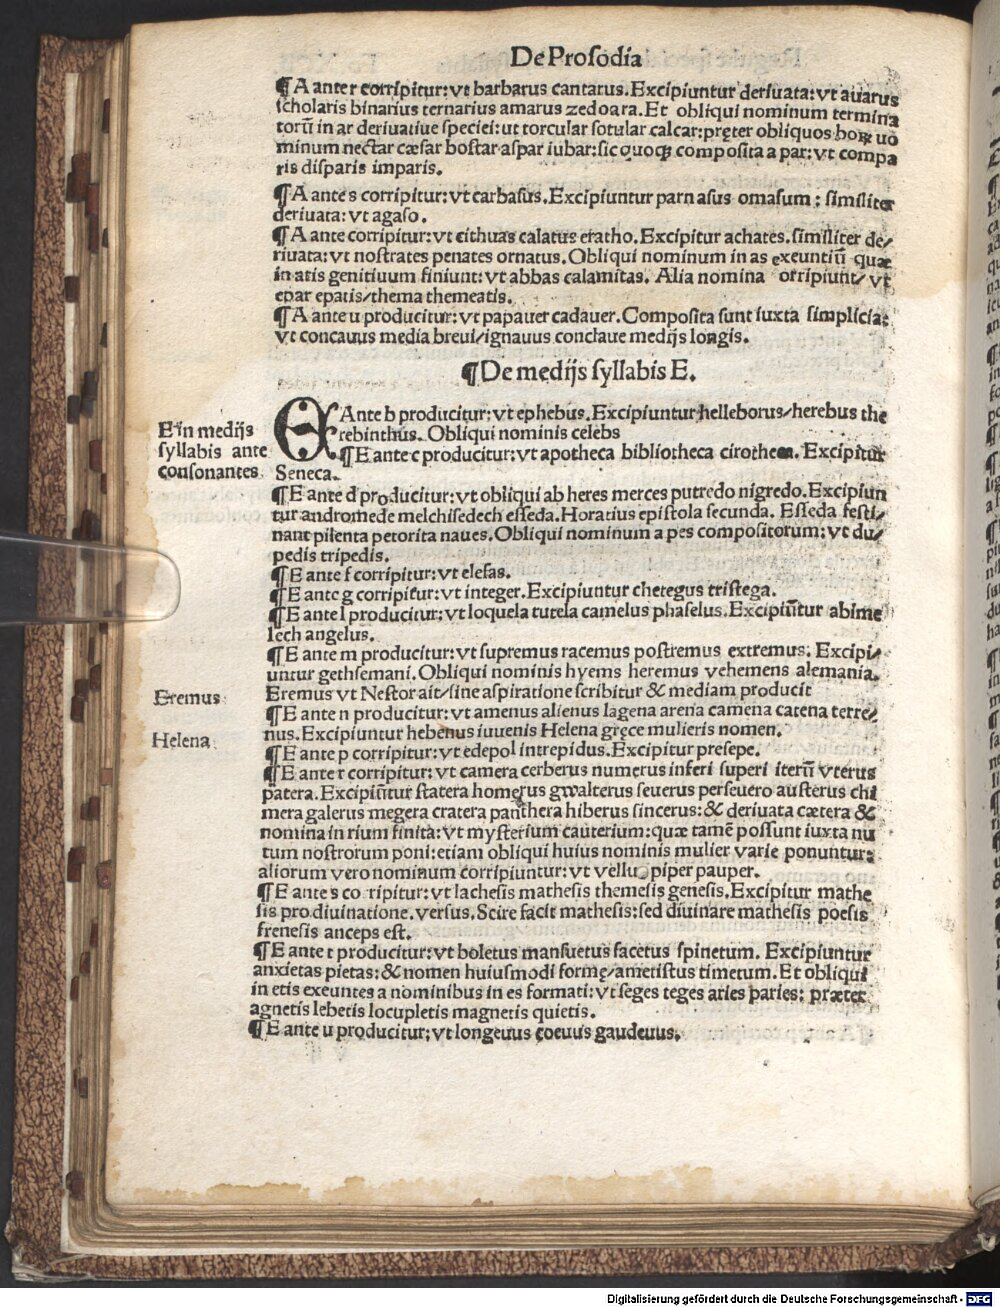 De Prosodia
¶A ante r corripitur: vt barbarus cantarus. Excipiuntur deriuata: vt auarus
scholaris binarius ternarius amarus zedoara. Et obliqui nominum termina
torũ in ar deriuatiue speciei: ut torcular sotular calcar: pręter obliquos hoꝝ uo
minum nectar cæsar bostar aspar iubar: sic quoqꝫ composita a par: vt compa
ris disparis imparis.
¶A ante s corripitur: vt carbasus. Excipiuntur parnasus omasum: similiter
deriuata: vt agaso.
¶A ante corripitur: vt cithuas calatus eratho. Excipitur achates. similiter de/
riuata: vt nostrates penates ornatus. Obliqui nominum in as exeuntiũ quæ
in atis genitiuum finiunt: vt abbas calamitas. Alia nomina orripiunt/ vt
epar epatis/ thema themeatis.
¶A ante u producitur: vt papauer cadauer. Composita sunt iuxta simplicia:
vt concauus media breui/ ignauus conclaue medijs longis.
¶De medijs syllabis E.
E in medijs
syllabis ante
consonantes
E Ante b producitur: vt ephebus. Excipiuntur helleborus/ herebus the
rebinthus. Obliqui nominis celebs
¶E ante c producitur: vt apotheca bibliotheca cirotheca. Excipitur
Seneca.
¶E ante d producitur: vt obliqui ab heres merces putredo nigredo. Excipiun
tur andromede melchisedech esseda. Horatius epistola secunda. Esseda festi/
nant pilenta petorita naues. Obliqui nominum a pes compositorum: vt du/
pedis tripedis.
¶E ante f corripitur: vt elefas.
¶E ante g corripitur: vt integer. Excipiuntur chetegus tristega.
¶E ante l producitur: vt loquela tutela camelus phaselus. Excipiũtur abime
lech angelus.
¶E ante m producitur: vt supremus racemus postremus extremus. Excipi/
untur gethsemani. Obliqui nominis hyems heremus vehemens alemania.
Eremus
Eremus vt Nestor ait/ sine aspiratione scribitur & mediam producit
¶E ante n producitur: vt amenus alienus lagena arena camena catena terre/
Helena
nus. Excipiuntur hebenus iuuenis Helena gręce mulieris nomen.
¶E ante p corripitur: vt edepol intrepidus. Excipitur presepe.
¶E ante r corripitur: vt camera cerberus numerus inferi superi iterũ vterus
patera. Excipiũtur statera homęrus gwalterus seuerus perseuero austerus chi
mera galerus megera cratera panthera hiberus sincerus: & deriuata cætera &
nomina in rium finita: vt mysterium cauterium: quæ tamẽ possunt iuxta nu
tum nostrorum poni: etiam obliqui huius nominis mulier varie ponuntur:
aliorum vero nominum corripiuntur: vt piper pauper.
¶E ante s corripitur: vt lachesis mathesis themesis genesis. Excipitur mathe
sis pro diuinatione. versus. Scire facit mathesis: sed diuinare mathesis poesis
frenesis anceps est.
¶E ante t producitur: vt boletus mansuetus facetus spinetum. Excipiuntur
anxietas pietas: & nomen huiusmodi formę/ ametistus timetum. Et obliqui
in etis exeuntes a nominibus in es formati: vt seges teges aries paries: præter
agnetis lebetis locupletis magnetis quietis.
¶E ante u producitur: vt longeuus coeuus gaudeuus.
Digitalisierung gefördert durch die Deutsche Forschungsgemeinschaft - DFG